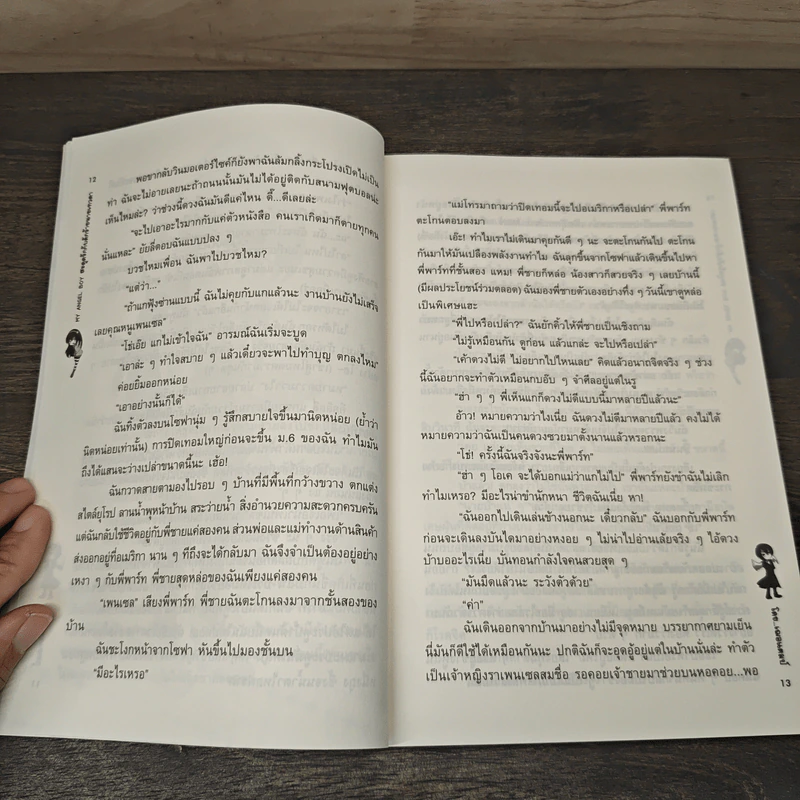 12
MY ANGEL BOY
พอขากลับวินมอเตอร์ไซค์ก็ยังพาฉันล้มกลิ้งกระโปรงเปิดไม่เป็น
ท่า ฉันจะไม่อายเลยนะถ้าถนนนั้นมันไม่ได้อยู่ติดกับสนามฟุตบอลน่ะ
เห็นไหมล่ะ? ว่าช่วงนี้ดวงฉันมันดีแค่ไหน ดี๊...ดีเลยล่ะ
“จะไปเอาอะไรมากกับแค่ตัวหนังสือ คนเราเกิดมาก็ตายทุกคน
นั่นแหละ” ยัยลี่ตอบฉันแบบปลง ๆ
บวชไหมเพื่อน ฉันพาไปบวชไหม?
“แต่ว่า...”
“ถ้าแกฟุ้งซ่านแบบนี้ ฉันไม่คุยกับแกแล้วนะ งานบ้านยังไม่เสร็จ
เลยคุณหนูเพนเซล”
“โช่เอ๊ย แกไม่เข้าใจฉัน” อารมณ์ฉันเริ่มจะบูด
“เอาล่ะ ๆ ทำใจสบาย ๆ แล้วเดี๋ยวจะพาไปทำบุญ ตกลงไหม”
ค่อยยิ้มออกหน่อย
“เอาอย่างนั้นก็ได้”
ฉันทิ้งตัวลงบนโซฟานุ่ม ๆ รู้สึกสบายใจขึ้นมานิดหน่อย (ย้ำว่า
นิดหน่อยเท่านั้น) การปิดเทอมใหญ่ก่อนจะขึ้น ม.6 ของฉัน ทำไมมัน
ถึงได้แสนจะว่างเปล่าขนาดนี้นะ เฮ้อ!
ฉันกวาดสายตามองไปรอบ ๆ บ้านที่มีพื้นที่กว้างขวาง ตกแต่ง
สไตล์ยุโรป ลานน้ำพุหน้าบ้าน สระว่ายน้ำ สิ่งอำนวยความสะดวกครบครัน
แต่ฉันกลับใช้ชีวิตอยู่กับพี่ชายแค่สองคน ส่วนพ่อและแม่ทำงานด้านสินค้า
ส่งออกอยู่ที่อเมริกา นาน ๆ ทีถึงจะได้กลับมา ฉันจึงจำเป็นต้องอยู่อย่าง
เหงา ๆ กับพี่พาร์ท พี่ชายสุดหล่อของฉันเพียงแค่สองคน
“เพนเซล” เสียงพี่พาร์ท พี่ชายฉันตะโกนลงมาจากชั้นสองของ
บ้าน
ฉันชะโงกหน้าจากโซฟา หันขึ้นไปมองชั้นบน
“มีอะไรเหรอ”
“แม่โทรมาถามว่าปิดเทอมนี้จะไปอเมริกาหรือเปล่า” พี่พาร์ท
ตะโกนตอบลงมา
เอ๊ะ! ทำไมเราไม่เดินมาคุยกันดี ๆ นะ จะตะโกนกันไป ตะโกน
กันมาให้มันเปลืองพลังงานทำไม ฉันลุกขึ้นจากโซฟาแล้วเดินขึ้นไปหา
พี่พาร์ทที่ชั้นสอง แหม! พี่ชายก็หล่อ น้องสาวก็สวยจริง ๆ เลยบ้านนี้
(มีผลประโยชน์ร่วมตลอด) ฉันมองพี่ชายตัวเองอย่างทึ่ง ๆ วันนี้เขาดูหล่อ
เป็นพิเศษแฮะ
“พี่ไปหรือเปล่า?” ฉันยักคิ้วให้พี่ชายเป็นเชิงถาม
“ไม่รู้เหมือนกัน ดูก่อน แล้วแกล่ะ จะไปหรือเปล่า”
“เค้าดวงไม่ดี ไม่อยากไปไหนเลย” คิดแล้วอนาถจิตจริง ๆ ช่วง
นี้ฉันอยากจะทำตัวเหมือนกบอ๊บ ๆ จำศีลอยู่แต่ในรู
“ฮ่า ๆ ๆ พี่เห็นแกก็ดวงไม่ดีแบบนี้มาหลายปีแล้วนะ”
อ้าว! หมายความว่าไงเนี่ย ฉันดวงไม่ดีมาหลายปีแล้ว คงไม่ได้
หมายความว่าฉันเป็นคนดวงซวยมาตั้งนานแล้วหรอกนะ
“โช่! ครั้งนี้ฉันจริงจังนะพี่พาร์ท”
“ฮ่า ๆ โอเค จะได้บอกแม่ว่าแกไม่ไป” พี่พาร์ทยังขำฉันไม่เลิก
ทำไมเหรอ? มีอะไรน่าขำนักหนา ชีวิตฉันเนี่ย หา!
“ฉันออกไปเดินเล่นข้างนอกนะ เดี๋ยวกลับ” ฉันบอกกับพี่พาร์ท
ก่อนจะเดินลงบันไดมาอย่างหงอย ๆ ไม่น่าไปอ่านเล้ยจริง ๆ ไอ้ดวง
บ้าบออะไรเนี่ย บั่นทอนกำลังใจคนสวยสุด ๆ
“มันมืดแล้วนะ ระวังตัวด้วย”
“ค่า”
ฉันเดินออกจากบ้านมาอย่างไม่มีจุดหมาย บรรยากาศยามเย็น
นี่มันก็ดีใช้ได้เหมือนกันนะ ปกติฉันก็จะอุดอู้อยู่แต่ในบ้านนั่นล่ะ ทำตัว
เป็นเจ้าหญิงราเพนเซลสมชื่อ รอคอยเจ้าชายมาช่วยบนหอคอย...พอ
13